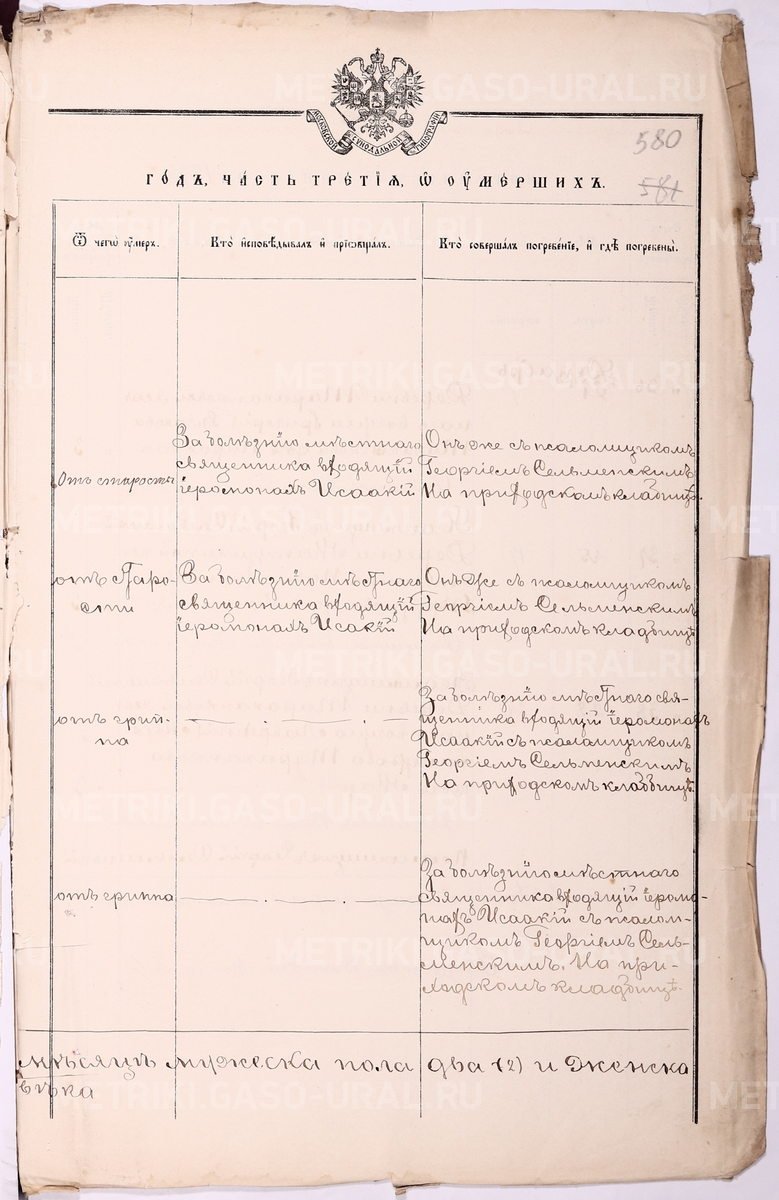 МОСКОВСКОЙ СѴНОДАЛЬНОЙ ТИПОГРАФІИ
580
581
ГО́ДЪ, ЧА́СТЬ ТРЕ́ТІѦ, Ѡ҆ ОУ҆МЕ́РШИХЪ.
Ѿ чегѡ̀ оу҆́меръ.
Кто̀ и҆сповѣ́дывалъ и҆ прїѡбща́лъ.
Кто̀ соверша́лъ погребе́нїе, и҆ гдѣ̀ погребены̀.
Отъ старости
За болѣзнію мѣстнаго
священника входящій
іеромонахъ Исаакій
Онъ же съ псаломщикомъ
Георгіемъ Сельменскимъ
На приходскомъ кладбищѣ.
отъ старо-
сти
За болѣзнію мѣстнаго
священника входящій
іеромонахъ Исакій
Онъ же съ псаломщикомъ
Георгіемъ Сельменскимъ
На приходскомъ кладбищѣ
отъ грип-
па
За болѣзнію мѣстнаго свя-
щенника входящій іеромонахъ
Исаакій съ псаломщикомъ
Георгіемъ Сельменскимъ
На приходскомъ кладбищѣ.
отъ гриппа
За болѣзнію мѣстнаго
священника входящій іеромо-
нахъ Исаакій съ псалом-
щикомъ Георгіемъ Сель-
менскимъ. На при-
ходскомъ кладбищѣ.
мѣсяцъ мужеска пола два (2) и женска
вѣка
METRIKI.GASO-URAL.RU